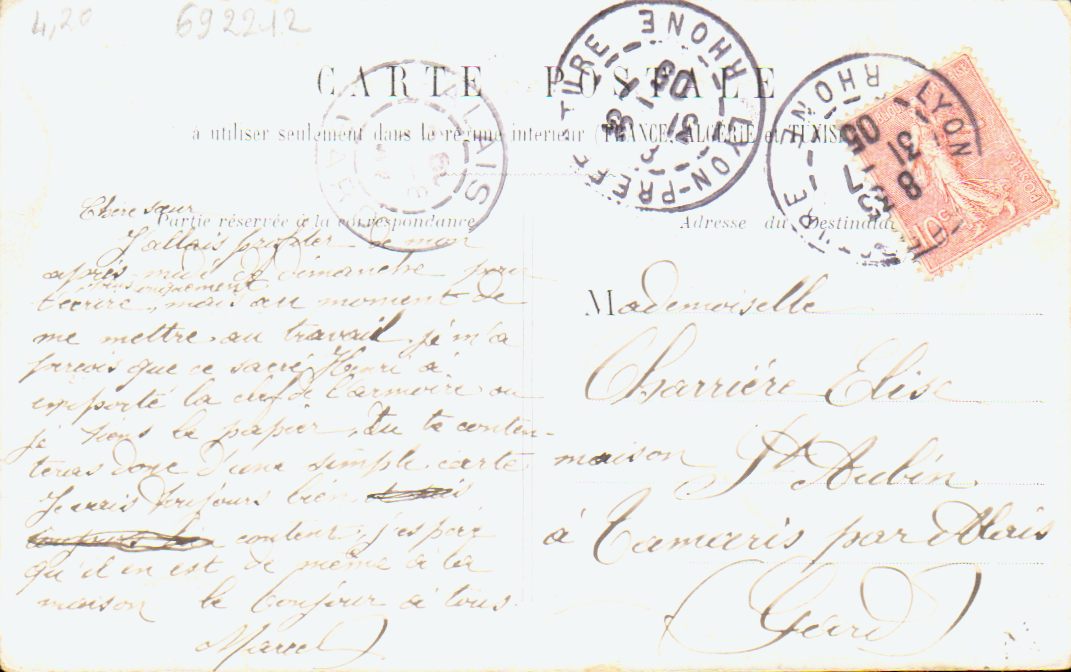 4,20 692212
CARTE POSTALE
à utiliser seulement dans le régime intérieur (FRANCE, ALGERIE et TUNISIE
Partie réservée à la correspondance
Adresse du Destinataire
LYON-PREFECTURE RHONE
31 05
LYON RHONE
8 31 7 05
ALAIS
10c POSTES
Chère sœur
J'allais profiter de mon
après midi de dimanche pour
t'écrire longuement, mais au moment de
me mettre au travail, je m'a
perçois que ce sacré Henri à
emporté la clef de l'armoire ou
je tiens le papier, tu te conten-
teras donc d'une simple carte
Je vais toujours bien
content, j'espère
qu'il en est de même à la
maison le bonjour à tous
Marcel
Mademoiselle
Charrière Elise
maison St Aubin
à Tamaris par Alais
(Gard)